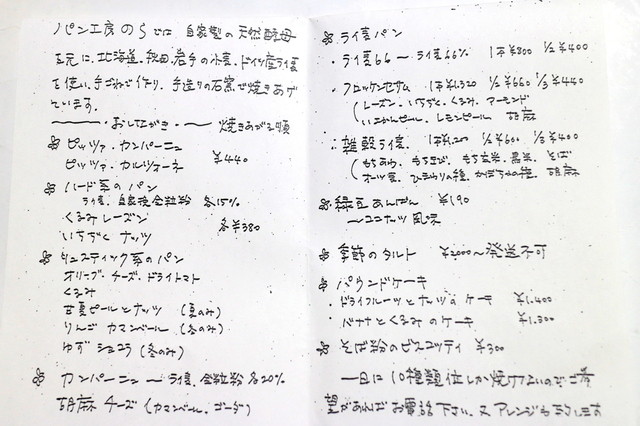 パン工房のらでは 自家製の天然酵母
を元に、北海道、秋田、岩手の小麦、ドイツ産ライ麦
を使い、手ごねで作り、手造りの石窯で焼きあげ
ています。
おしながき 焼きあがる順
ピッツァ・カンパーニュ
ピッツァ・カルツォーネ ¥440
ハード系のパン
ライ麦、自家挽全粒粉 各15%
くるみレーズン
いちぢくナッツ 各¥380
リュスティック系のパン
オリーブ・チーズ・ドライトマト
くるみ
甘夏ピールとナッツ (夏のみ)
りんごカマンベール (冬のみ)
ゆずショコラ (冬のみ)
カンパーニュ 〜 ライ麦、全粒粉 各20%
胡麻チーズ (カマンベール、ゴーダ)
ライ麦パン
・ライ麦66 〜 ライ麦66% 1本¥800 1/2 ¥400
・フロッケンセサム 1本¥1,320 1/2 ¥660 1/3 ¥440
(レーズン・いちぢく・くるみ・アーモンド
レモンピール 胡麻
・雑穀ライ麦 1本¥1,200 1/2 ¥600 1/3 ¥400
(もちあわ、もちきび、もち玄米、黒米、そば
オーツ麦、ひまわりの種、かぼちゃの種、胡麻
緑豆あんぱん ¥190
〜ココナッツ風味
季節のタルト ¥2000〜 発送不可
パウンドケーキ
・ドライフルーツとナッツのケーキ ¥1,400
・バナナとくるみのケーキ ¥1,300
そば粉のビスコッティ ¥300
一日に10種類位しか焼けないのでご希
望があればお電話下さい。又アレンジも致します